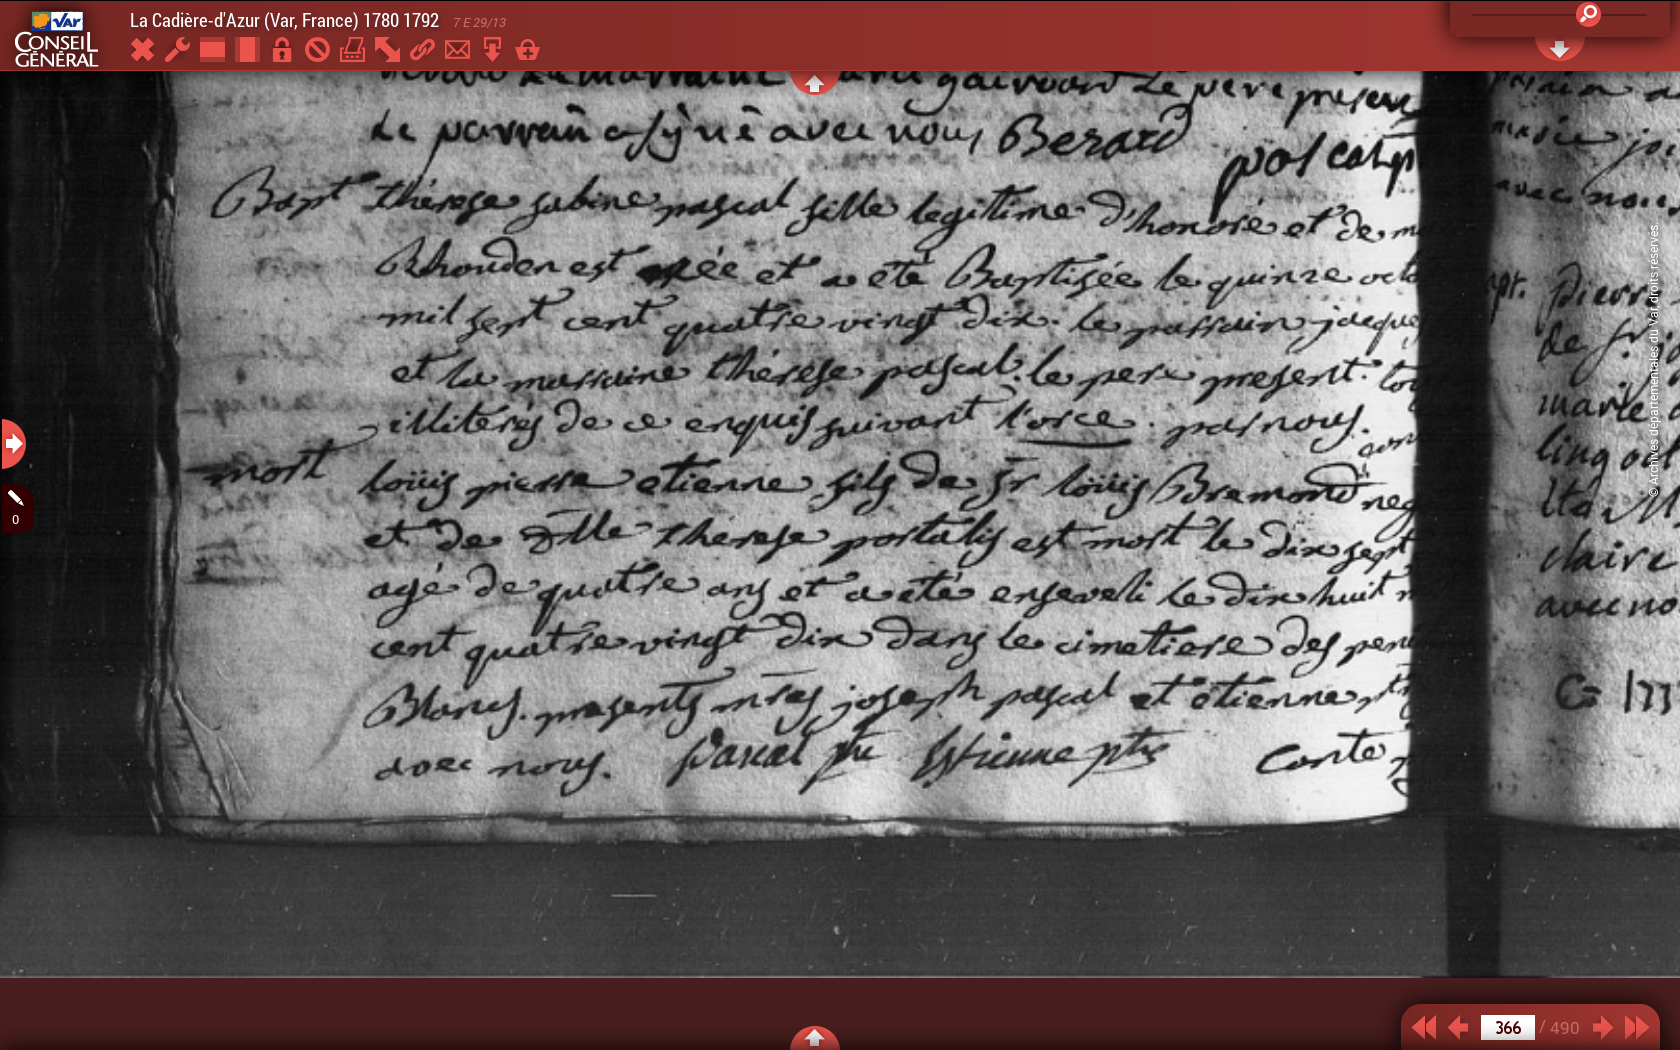 La Cadière-d'Azur (Var, France) 1780 1792 7 E 29/13
Var
CONSEIL
GÉNÉRAL
la marraine gairoard Le pere present
Le parrain a signé avec nous Berard
pascal p
Bapt thérese sabine pascal fille legitime d'honoré et de m
Rhouden est née et a eté Baptisée le quinze octo
mil sept cent quatre vingt dix. le parrain jacques
et la marraine thérese pascal. le pere present. tou
illiterés de ce enquis suivant l'orce. par nous.
mort loüis pierre etienne fils de sr loüis Bremond neg
et de dlle therese portalis est mort le dix sept
agé de quatre ans et a eté enseveli le dix huit m
cent quatre vingt dix dans le cimetiere des peni
Blancs. presents mres joseph pascal et etienne ptr
avec nous. Pascal ptre Estienne ptre Conte
marie jo
avec nous
pt. Pierr
de fr
marie
claire
avec no
© Archives départementales du Var, droits réservés.
0
366 / 490